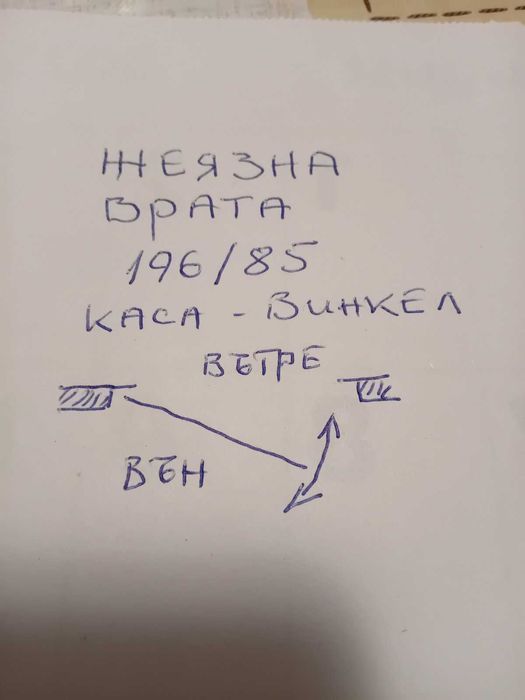 ЖЕЯЗНА
ВРАТА
196/85
КАСА - ВИНКЕЛ
ВЪТРЕ
ВЪН